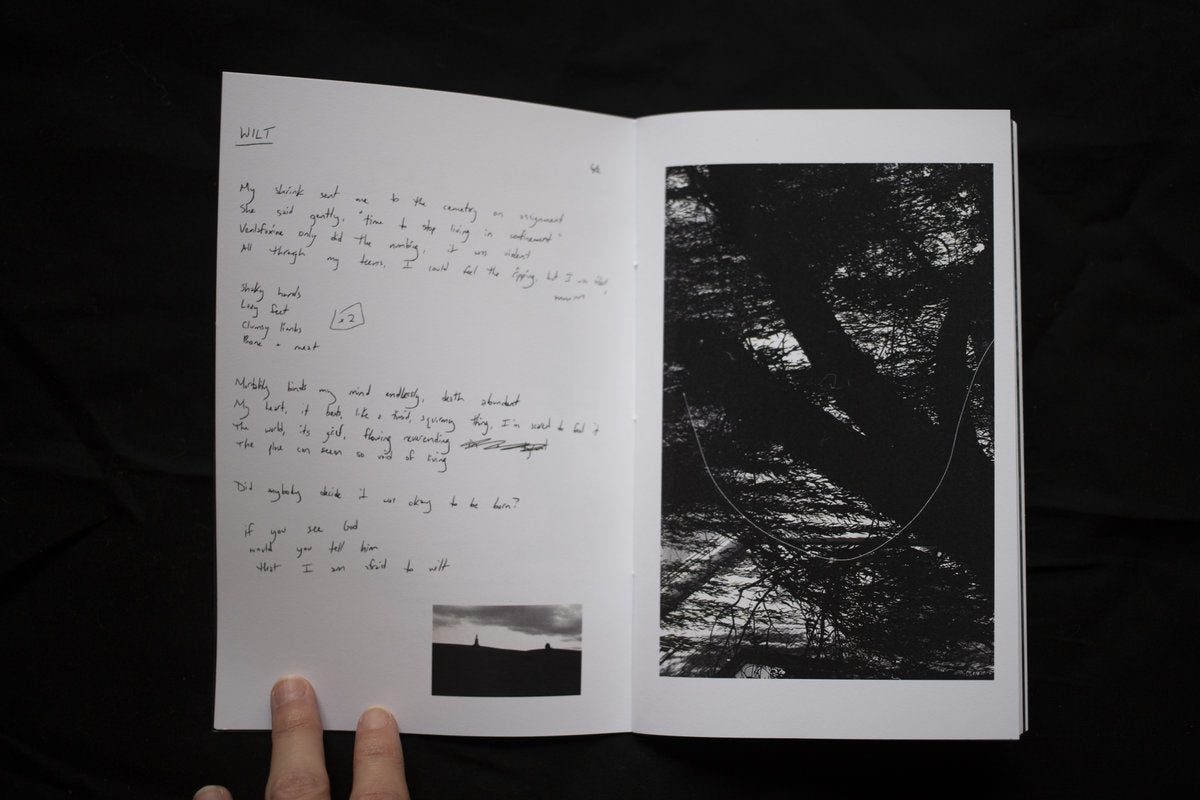 WILT
My shrink sent me to the cemetry on assignment
She said gently, "time to stop living in confinement"
Venlafaxine only did the numbing, it was violent
All through my teens, I could feel the ripping, but I was silent
Shaky hands
Lazy feet
Clumsy limbs
x2
Bone + meat
my mind endlessly, death abundant
My heart, it beats like a timid, squirming thing, I'm scared to feel it
The world, its grief, flowing neverending
The place can seem so void of living
Did anybody decide I was okay to be born?
if you see God
would you tell him
that I am afraid to wilt